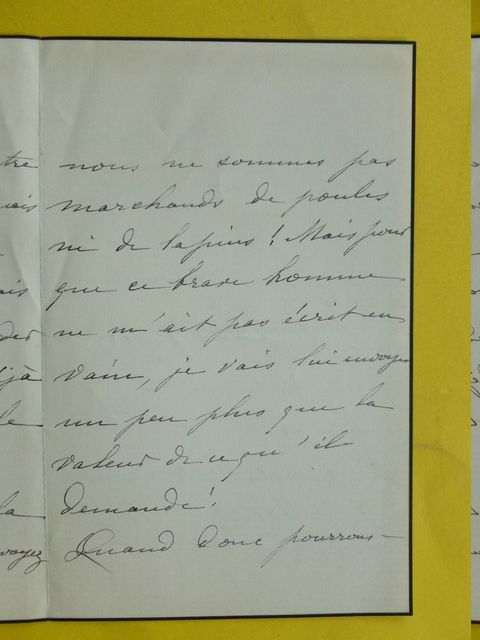 tre
nous ne sommes pas
marchands de poules
ni de lapins! Mais pour
que ce brave homme
ne m'ait pas écrit en
vain, je vais lui envoyer
un peu plus que la
valeur de ce qu'il
demande!
Quand donc pourrons-
ais
der
jà
le
la
voyez